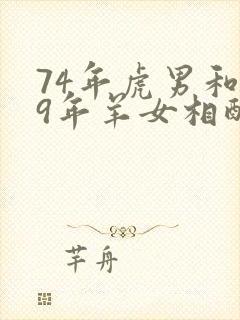 74年虎男和
9年羊女相配
芊舟